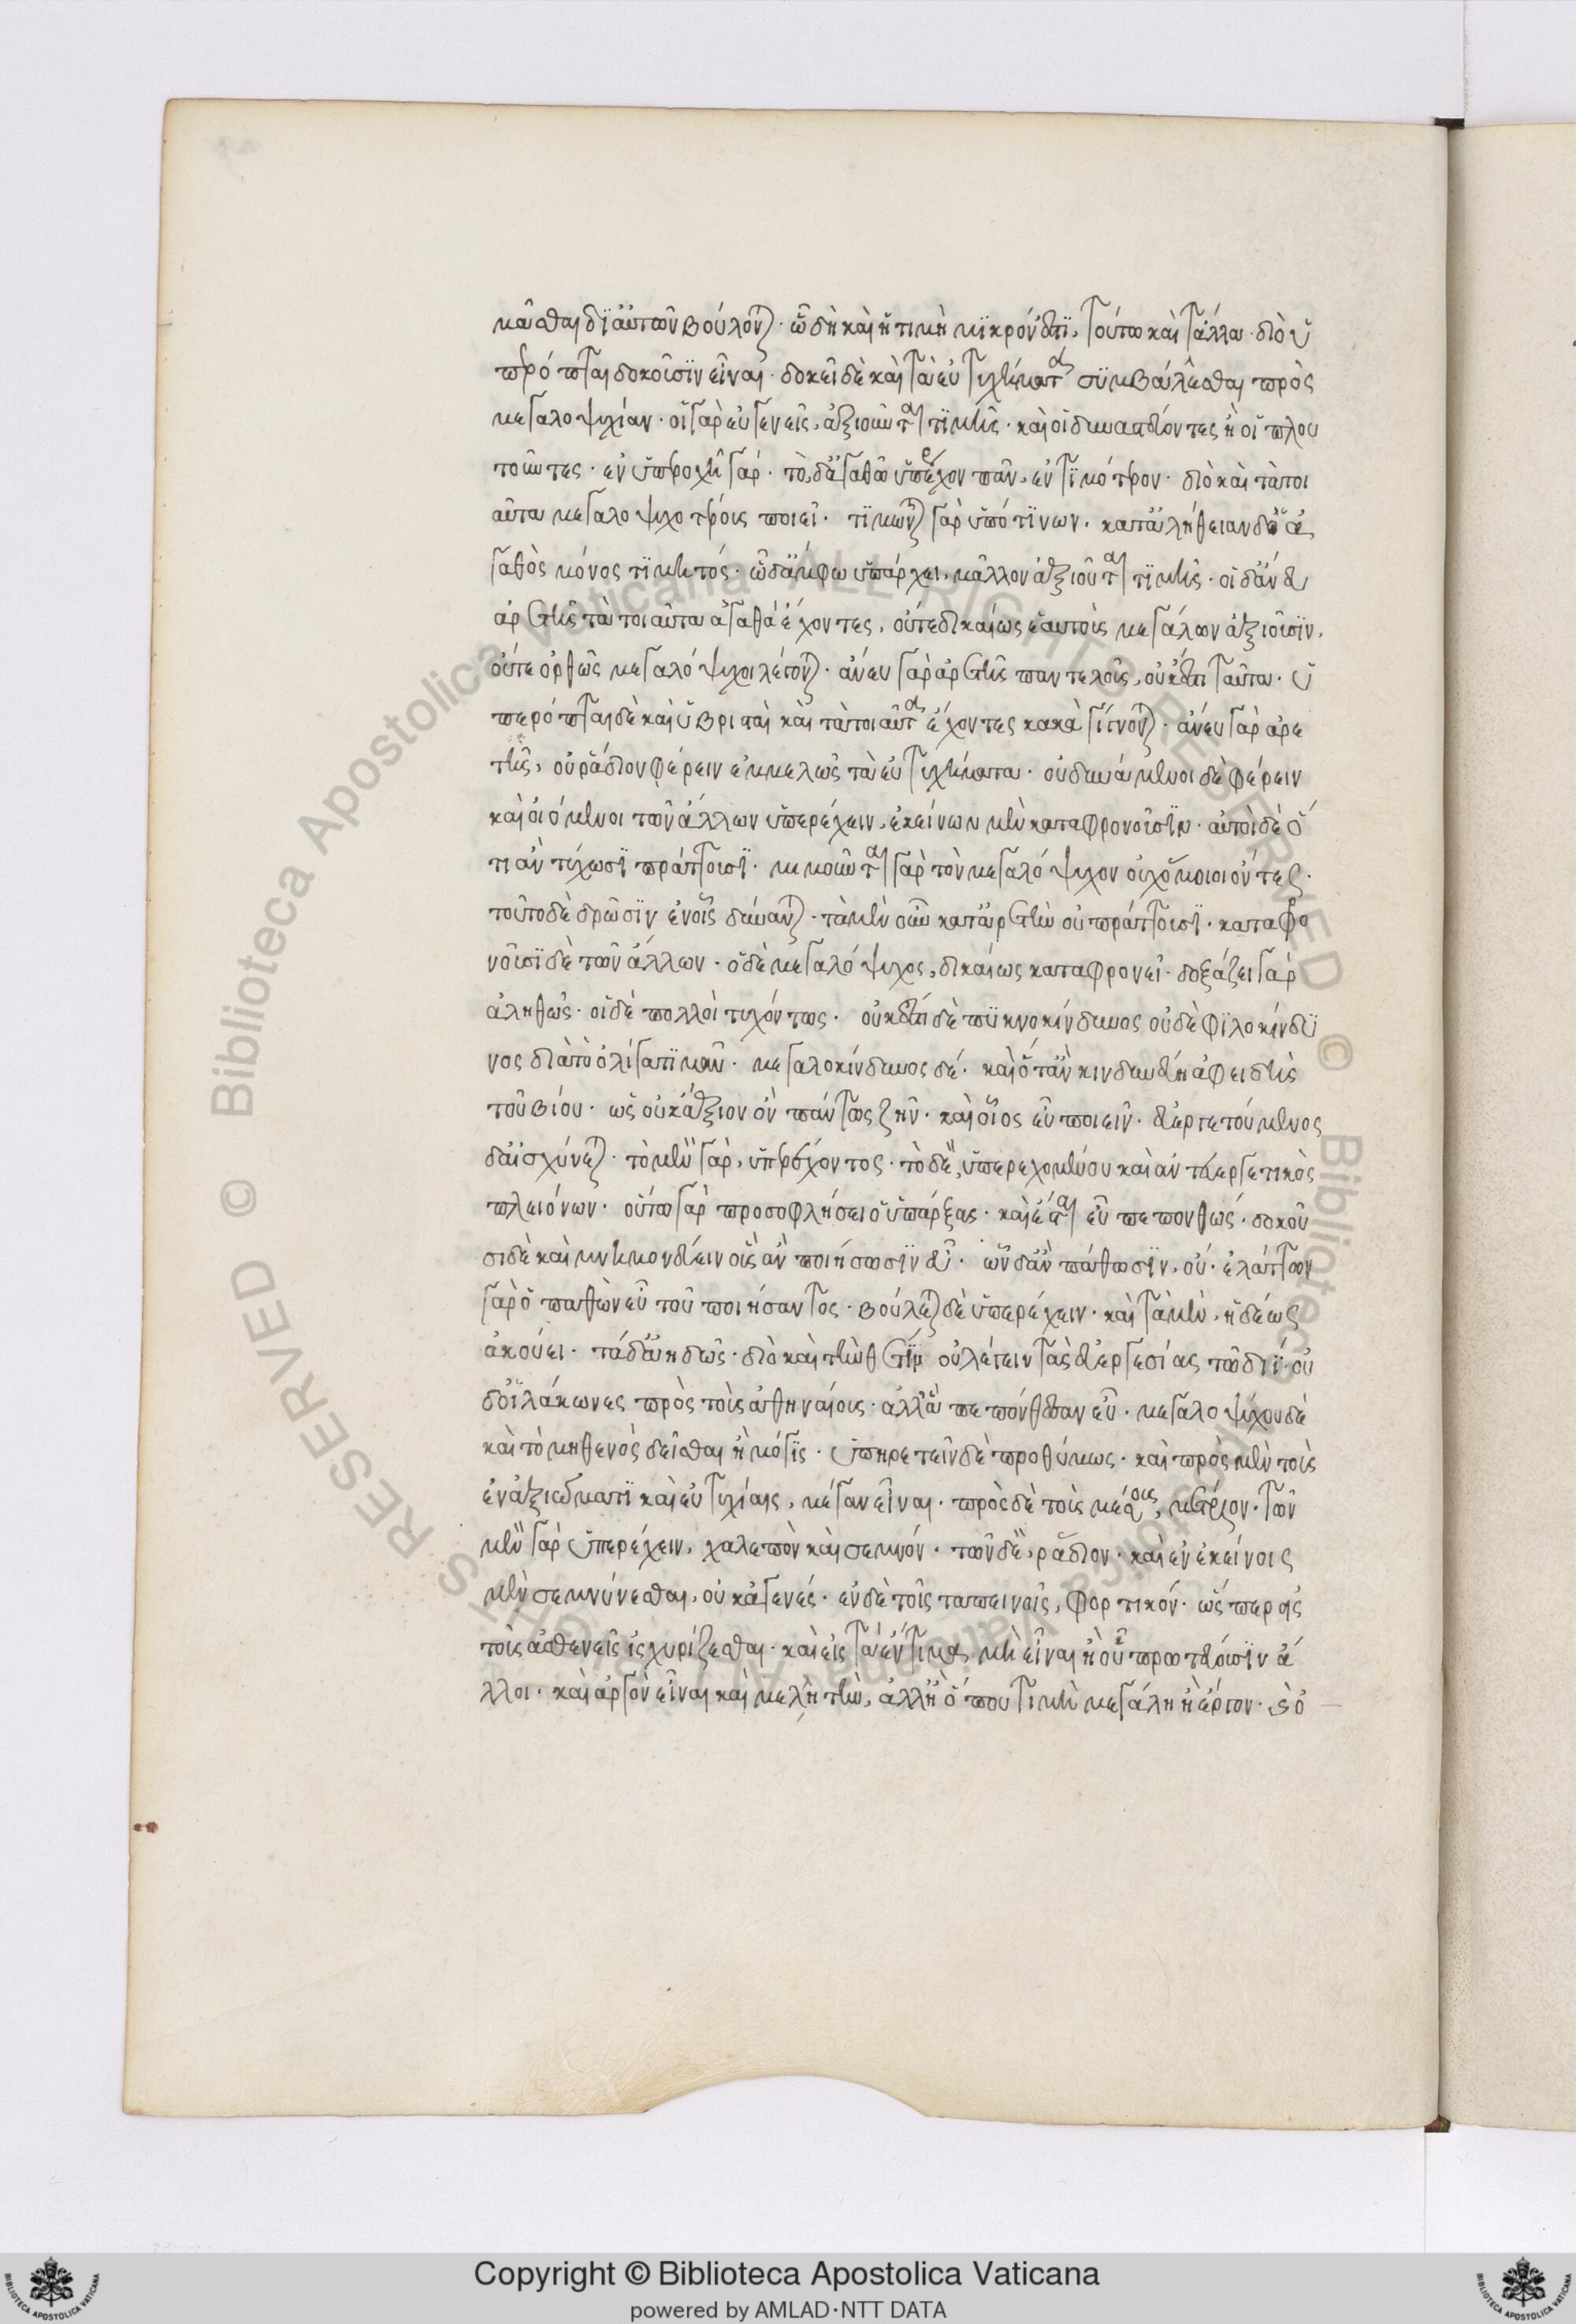 μᾶσθαι δι' αὐτῶν βούλονται· ᾧ δὴ καὶ ἡ τιμὴ μικρόν ἐστι, τούτω καὶ τἆλλα· διὸ ὑ
περόπται δοκοῦσιν εἶναι· δοκεῖ δὲ καὶ τὰ εὐτυχήματα συμβάλλεσθαι πρὸς
μεγαλοψυχίαν· οἱ γὰρ εὐγενεῖς, ἀξιοῦνται τιμῆς· καὶ οἱ δυναστεύοντες ἢ οἱ πλου
τοῦντες· ἐν ὑπεροχῇ γάρ· τὸ δ' ἀγαθῶ ὑπερέχον πᾶν, ἐντιμότερον· διὸ καὶ τὰ τοι
αῦτα μεγαλοψυχοτέρους ποιεῖ· τιμῶνται γὰρ ὑπό τινων· κατ' ἀλήθειαν δ' ὁ ἀ
γαθὸς μόνος τιμητός· ᾧ δ' ἄμφω ὑπάρχει, μᾶλλον ἀξιοῦται τιμῆς· οἱ δ' ἄνευ
ἀρετῆς τὰ τοιαῦτα ἀγαθὰ ἔχοντες, οὔτε δικαίως ἑαυτοὺς μεγάλων ἀξιοῦσιν,
οὔτε ὀρθῶς μεγαλόψυχοι λέγονται· ἄνευ γὰρ ἀρετῆς παντελοῦς, οὐκ ἔστι ταῦτα· ὑ
περόπται δὲ καὶ ὑβρισταὶ καὶ τὰ τοιαῦτα ἔχοντες κακὰ γίγνονται· ἄνευ γὰρ ἀρε
τῆς, οὐ ῥάδιον φέρειν ἐμμελῶς τὰ εὐτυχήματα· οὐ δυνάμενοι δὲ φέρειν
καὶ οἰόμενοι τῶν ἄλλων ὑπερέχειν, ἐκείνων μὲν καταφρονοῦσιν· αὐτοὶ δὲ ὅ
τι ἂν τύχωσι πράττουσι· μιμοῦνται γὰρ τὸν μεγαλόψυχον οὐχ ὅμοιοι ὄντες·
τοῦτο δὲ δρῶσιν ἐν οἷς δύνανται· τὰ μὲν οὖν κατ' ἀρετὴν οὐ πράττουσι· καταφρο
νοῦσι δὲ τῶν ἄλλων· ὁ δὲ μεγαλόψυχος, δικαίως καταφρονεῖ· δοξάζει γὰρ
ἀληθῶς· οἱ δὲ πολλοὶ τυχόντως· οὐκ ἔστι δὲ πυκνοκίνδυνος οὐδὲ φιλοκίνδυ
νος διὰ τὸ ὀλίγα τιμᾶν· μεγαλοκίνδυνος δέ· καὶ ὅταν κινδυνεύῃ ἀφειδὴς
τοῦ βίου· ὡς οὐκ ἄξιον ὂν πάντως ζῆν· καὶ οἷος εὖ ποιεῖν· εὐεργετούμενος
δ' αἰσχύνεται· τὸ μὲν γὰρ, ὑπερέχοντος· τὸ δὲ, ὑπερεχομένου καὶ ἀντευεργετικὸς
πλειόνων· οὕτω γὰρ προσοφλήσει ὁ ὑπάρξας· καὶ ἔσται εὖ πεπονθώς· δοκοῦ
σι δὲ καὶ μνημονεύειν οἷς ἂν ποιήσωσιν εὖ· ὧν δ' ἂν πάθωσιν, οὔ· ἐλάττων
γὰρ ὁ παθὼν εὖ τοῦ ποιήσαντος· βούλεται δὲ ὑπερέχειν· καὶ τὰ μὲν, ἡδέως
ἀκούει· τὰ δ' ἀηδῶς· διὸ καὶ τὴν θέτιν οὐ λέγειν τὰς εὐεργεσίας τῶ διί· οὐ
δ' οἱ λάκωνες πρὸς τοὺς ἀθηναίους· ἀλλ' ἃ πεπόνθεσαν εὖ· μεγαλοψύχου δὲ
καὶ τὸ μηθενὸς δεῖσθαι ἢ μόγις· ὑπηρετεῖν δὲ προθύμως· καὶ πρὸς μὲν τοὺς
ἐν ἀξιώματι καὶ εὐτυχίαις, μέγαν εἶναι· πρὸς δὲ τοὺς μέσους, μέτριον· τῶν
μὲν γὰρ ὑπερέχειν, χαλεπὸν καὶ σεμνόν· τῶν δὲ, ῥάδιον· καὶ ἐν ἐκείνοις
μὲν σεμνύνεσθαι, οὐκ ἀγενές· ἐν δὲ τοῖς ταπεινοῖς, φορτικόν· ὥσπερ εἰς
τοὺς ἀσθενεῖς ἰσχυρίζεσθαι· καὶ εἰς τὰ ἔντιμα μὴ εἶναι ἢ οὗ πρωτεύουσιν ἄ
λλοι· καὶ ἀργὸν εἶναι καὶ μελητὴν, ἀλλ' ἢ ὅπου τιμὴ μεγάλη ἢ ἔργον· καὶ ὀ
Copyright © Biblioteca Apostolica Vaticana
powered by AMLAD·NTT DATA